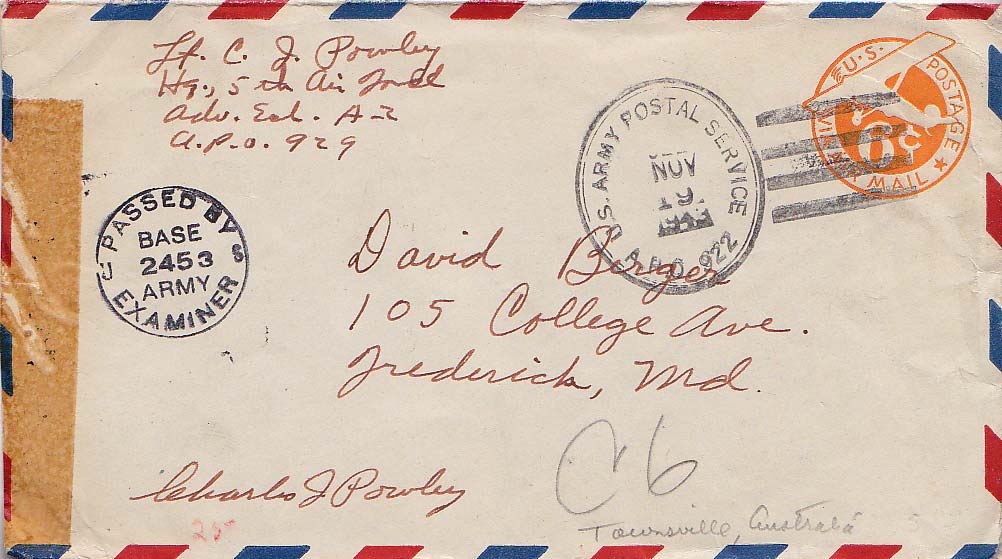 Lt. C. J. Powley
Hq., 5th Air Force
Adv. Ech. A-2
A.P.O. 929
U.S. POSTAGE
VIA AIR MAIL
6¢
U.S. ARMY POSTAL SERVICE
NOV
19
A.P.O. 922
PASSED BY
BASE
2453
ARMY
U S
EXAMINER
David Berger
105 College Ave.
Frederick, Md.
Charles J Powley
C6
25
Townsville, Australia